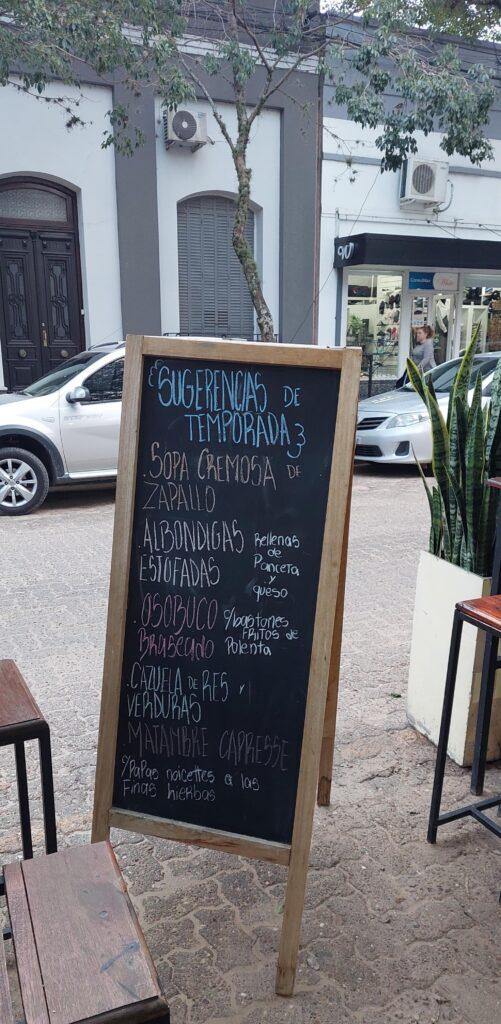 SUGERENCIAS DE
TEMPORADA
. SOPA CREMOSA DE
ZAPALLO
. ALBONDIGAS Rellenas
ESTOFADAS de
Panceta
y
queso
. OSOBUCO c/bastones
Braseado FRITOS de
Polenta
. CAZUELA DE RES Y
VERDURAS
. MATAMBRE CAPRESSE
c/PaPas noicettes a las
Finas hierbas